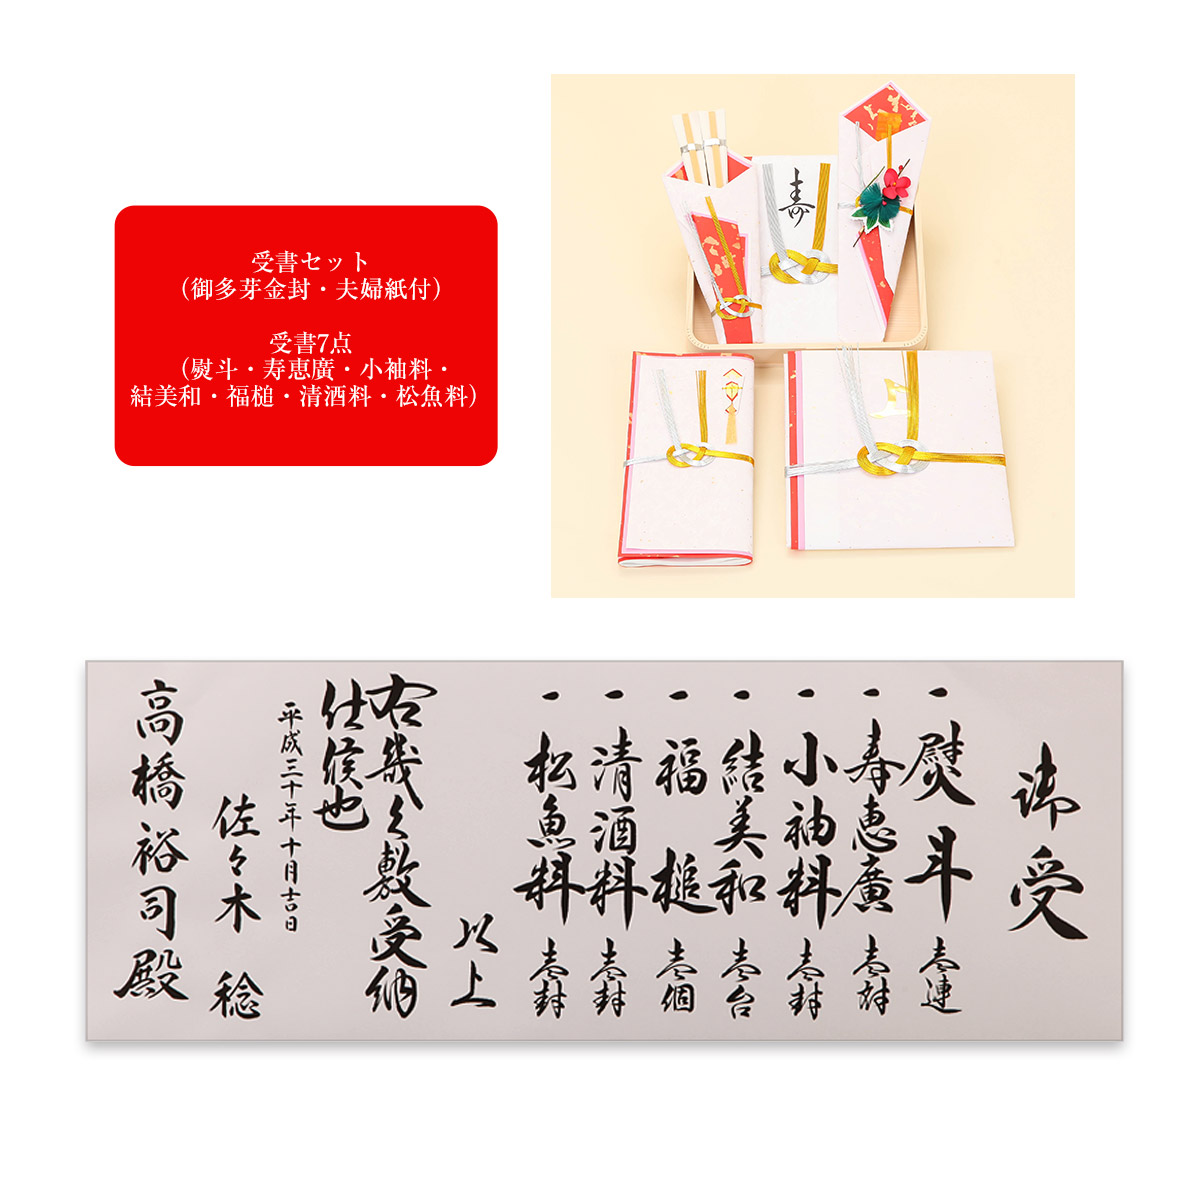 受書セット
（御多芽金封・夫婦紙付）
受書7点
（熨斗・寿恵廣・小袖料・
結美和・福槌・清酒料・松魚料）
寿
御受
一 熨斗 壱連
一 寿恵廣 壱対
一 小袖料 壱封
一 結美和 壱台
一 福槌 壱個
一 清酒料 壱封
一 松魚料 壱封
以上
右幾久敷受納
仕候也
平成三十年十月吉日
佐々木 稔
高橋裕司殿